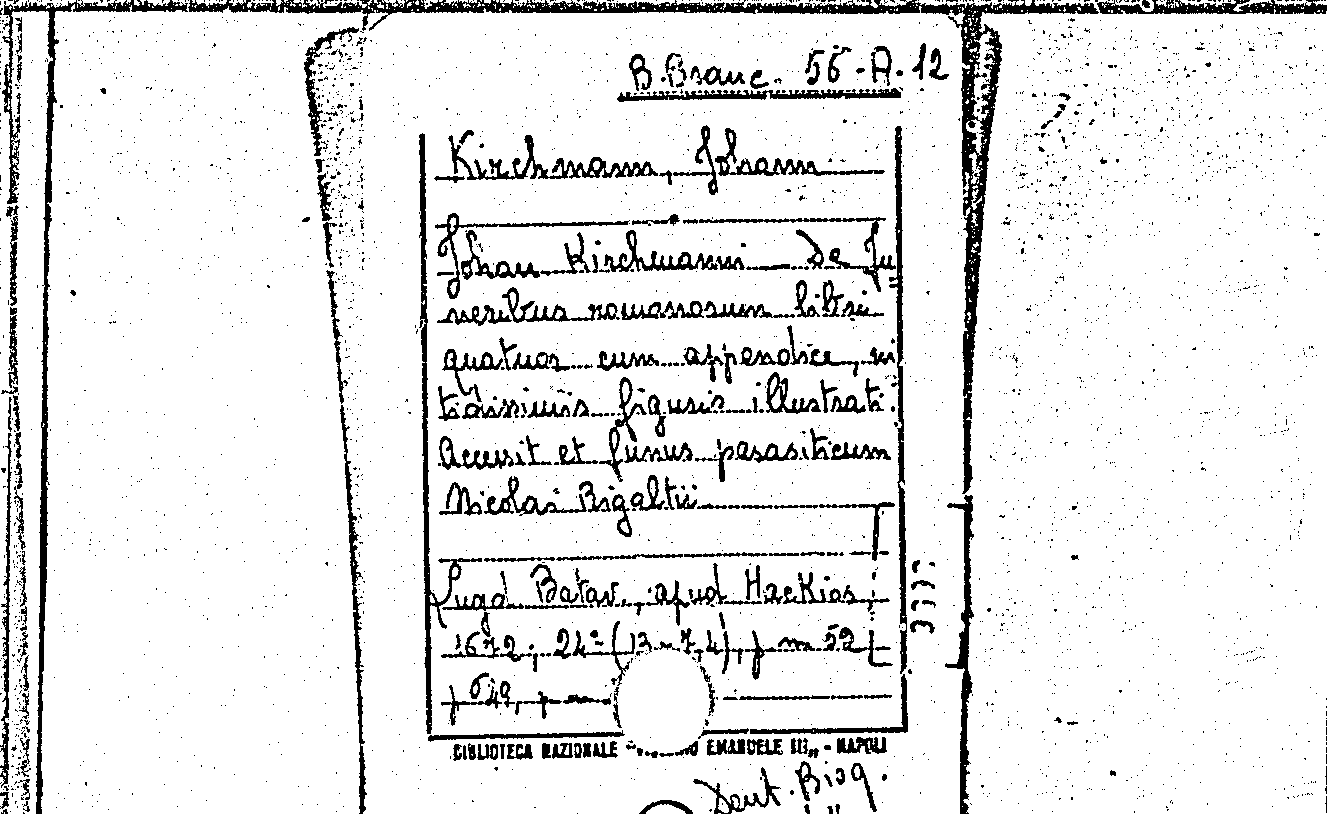 B. Branc. 56-A-12
Kirchmann, Johann
Johan Kirchmanni De fu
neribus romanorum libri
quatuor cum appendice, ni
tidissimis figuris illustrati.
Accesit et funus parasiticum
Nicolai Rigaltii
Lugd. Batav., apud Hackios,
1672; 24° (13 × 7,4), p
p
BIBLIOTECA NAZIONALE EMANUELE III„ - NAPOLI
Deut. Biog.